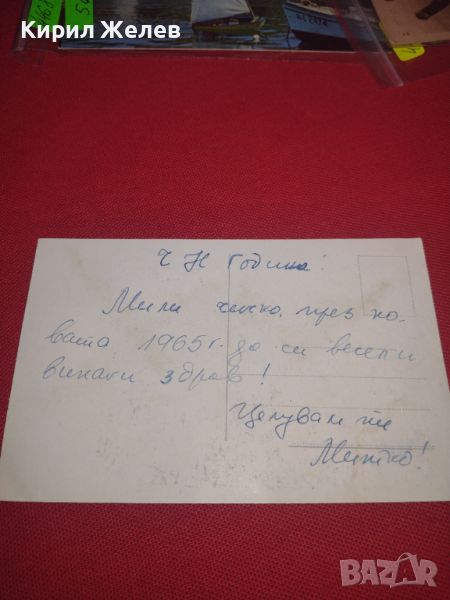 Кирил Желев
Ч Н Година!
Мили чичко, през но-
вата 1965 г. да си весел и
винаги здрав!
Целувам ти
Митко!
BAZAR